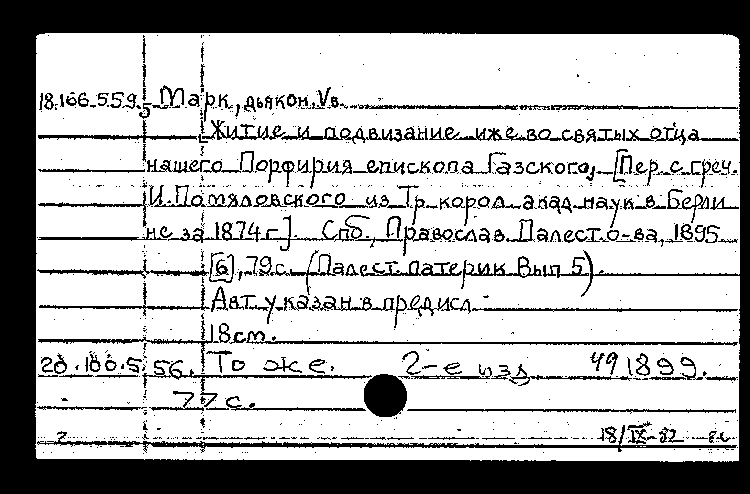 18.166.5.59. Марк, дьякон. V в.
Житие и подвизание иже во святых отца
нашего Порфирия епископа Газского, [Пер. с греч.
И. Помяловского из Тр. корол. акад. наук в Берли
не за 1874 г.]. Спб., Православ. Палест. о-ва, 1895.
[6], 79 с. (Палест. патерик Вып 5).
Авт. указан в предисл.
18 см.
20.100.5.56. То же. 2-е изд. 1899.
77 с.
2 18/IX-82